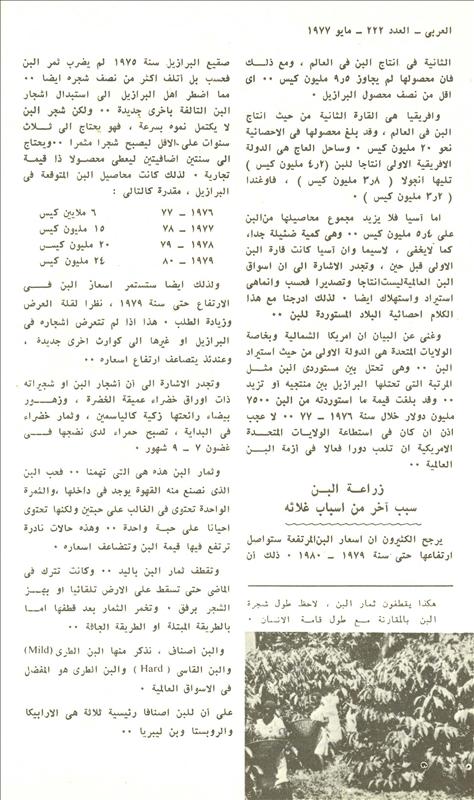 العربي – العدد ٢٢٢ – مايو ١٩٧٧
الثانية في انتاج البن في العالم ، ومع ذلك
فان محصولها لم يجاوز ٩ر٥ مليون كيس ٠٠ اى
اقل من نصف محصول البرازيل ٠
وافريقيا هي القارة الثانية من حيث انتاج
البن في العالم ، وقد بلغ محصولها في الاحصائية
نحو ٢٠ مليون كيس ٠ وساحل العاج هي الدولة
الافريقية الاولى انتاجا للبن (٤ر٢ مليون كيس )
تليها انجولا ( ٣٫٨ مليون كيس ) ، فاوغندا
( ٣ر٢ مليون كيس ) ٠
اما آسيا فلا يزيد مجموع محاصيلها من البن
على ٥ر٤ مليون كيس ٠٠ وهي كمية ضئيلة جدا،
كما لايخفى ، لاسيما وان آسيا كانت قارة البن
الاولى قبل حين ، وتجدر الاشارة الى ان اسواق
البن العالمية ليست انتاجا وتصديرا فحسب وانما هي
استيراد واستهلاك ايضا ٠ لذلك ادرجنا مع هذا
الكلام احصائية البلاد المستوردة للبن ٠٠
وغنى عن البيان ان امريكا الشمالية وبخاصة
الولايات المتحدة هي الدولة الاولى من حيث استيراد
البن ٠٠ وهي تحتل بين مستوردى البن مثل
المرتبة التى تحتلها البرازيل بين منتجيه او تزيد
٠٠ وقد بلغت قيمة ما استوردته من البن ٧٥٠٠
مليون دولار خلال سنة ١٩٧٦ – ٧٧ ٠٠ لا عجب
اذن ان كان في استطاعة الولايات المتحدة
الامريكية ان تلعب دورا فعالا في أزمة البن
العالمية ٠٠
زراعة البن
سبب آخر من اسباب غلائه
يرجح الكثيرون ان اسعار البن المرتفعة ستواصل
ارتفاعها حتى سنة ١٩٧٩ – ١٩٨٠ ٠ ذلك أن
هكذا يقطفون ثمار البن ، لاحظ طول شجرة
البن بالمقارنة مع طول قامة الانسان ٠
صقيع البرازيل سنة ١٩٧٥ لم يضرب ثمر البن
فحسب بل أتلف اكثر من نصف شجره ايضا ٠٠
مما اضطر اهل البرازيل الى استبدال اشجار
البن التالفة بأخرى جديدة ٠٠ ولكن شجر البن
لا يكتمل نموه بسرعة ، فهو يحتاج الى ثلاث
سنوات على الاقل ليصبح شجرا مثمرا ٠٠ ويحتاج
الى سنتين اضافيتين ليعطى محصولا ذا قيمة
تجارية ٠ لذلك كانت محاصيل البن المتوقعة في
البرازيل ، مقدرة كالتالى :
١٩٧٦ – ٧٧ ٦ ملايين كيس
١٩٧٧ – ٧٨ ١٥ مليون كيس
١٩٧٨ – ٧٩ ٢٠ مليون كيس
١٩٧٩ – ٨٠ ٢٤ مليون كيس
ولذلك ايضا ستستمر اسعار البن في
الارتفاع حتى سنة ١٩٧٩ ، نظرا لقلة العرض
وزيادة الطلب ٠ هذا اذا لم تتعرض اشجاره في
البرازيل او غيرها الى كوارث اخرى جديدة ،
وعندئذ يتضاعف ارتفاع اسعاره ٠٠
وتجدر الاشارة الى أن أشجار البن او شجيراته
ذات اوراق خضراء عميقة الخضرة ، وزهور
بيضاء رائحتها زكية كالياسمين ، وثمار خضراء
في البداية ، تصبح حمراء لدى نضجها في
غضون ٧ – ٩ شهور ٠
وثمار البن هذه هي التى تهمنا ٠٠ فحب البن
الذى نصنع منه القهوة يوجد في داخلها ، والثمرة
الواحدة تحتوى في الغالب على حبتين ولكنها تحتوى
احيانا على حبة واحدة ٠٠ وهذه حالات نادرة
ترتفع فيها قيمة البن وتتضاعف اسعاره ٠
وتقطف ثمار البن باليد ٠٠ وكانت تترك في
الماضى حتى تسقط على الارض تلقائيا او بهز
الشجر برفق ٠ وتخمر الثمار بعد قطفها اما
بالطريقة المبتلة او الطريقة الجافة ٠٠
والبن أصناف ، نذكر منها البن الطرى (Mild)
والبن القاسى ( Hard ) والبن الطرى هو المفضل
في الاسواق العالمية ٠
على أن للبن اصنافا رئيسية ثلاثة هي الارابيكا
والروبستا وبن ليبريا ٠٠